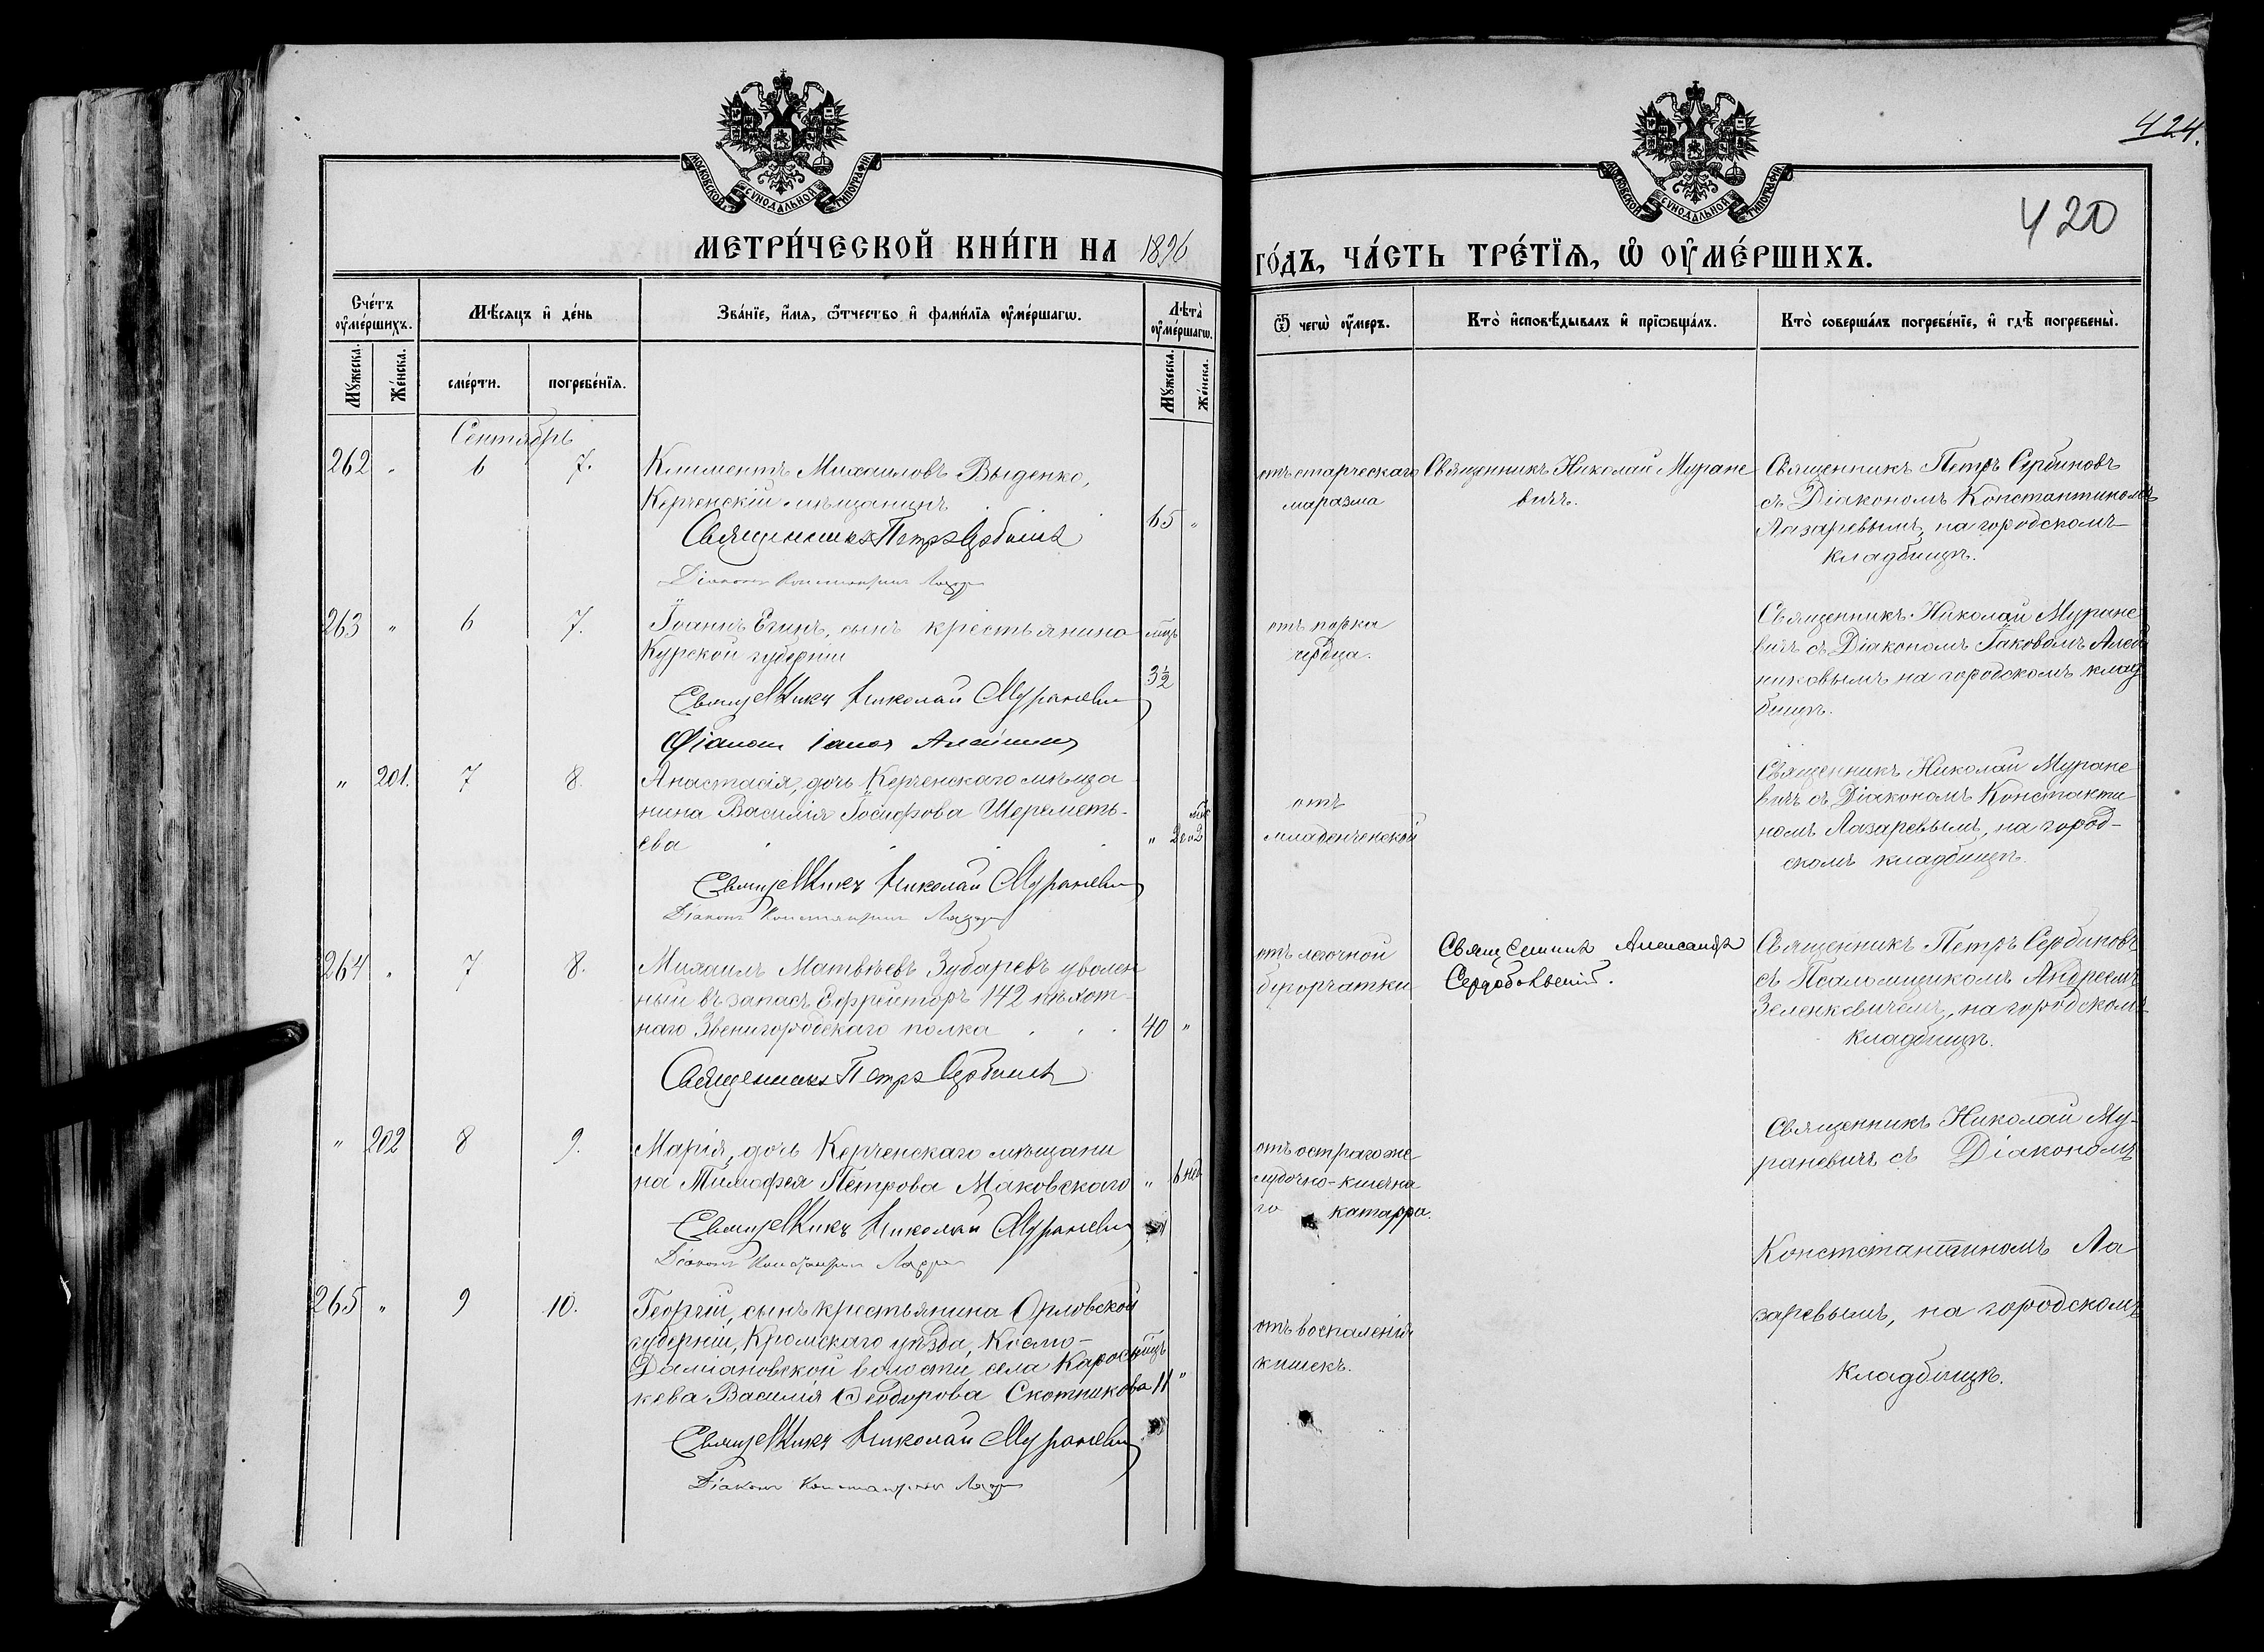 424.
420
МОСКОВСКОЙ СѴНОДАЛЬНОЙ ТИПОГРАФІИ
МОСКОВСКОЙ СѴНОДАЛЬНОЙ ТИПОГРАФІИ
МЕТРИ́ЧЕСКОЙ КНИ́ГИ НА 1896
ГО́ДЪ, ЧА́СТЬ ТРЕ́ТЇѦ, Ѽ ОУ҆МЕ́РШИХЪ.
Сче́тъ оу҆ме́ршихъ.
Мꙋ́жеска.
Же́нска.
Мѣ́сѧцъ и҆ де́нь
сме́рти.
погребе́нїѧ.
Зва́нїе, и҆́мѧ, ѻ҆́тчество и҆ фами́лїѧ оу҆ме́ршагѡ.
Лѣта̀ оу҆ме́ршагѡ.
Мꙋ́жеска.
Же́нска.
Ѿ чегѡ̀ оу҆́меръ.
Кто̀ и҆сповѣ́дывалъ и҆ прїѡбща́лъ.
Кто̀ соверша́лъ погребе́нїе, и҆ гдѣ̀ погребены̀.
Сентябрь
262 " 6 7.
Климентъ Михаиловъ Выденко,
Керченскій мѣщанинъ
65 "
Священникъ Петръ Сербиновъ
Діаконъ Константинъ Лазаревъ
отъ старческаго
маразма
Священникъ Николай Муране
вичъ.
Священникъ Петръ Сербиновъ
съ Діакономъ Константиномъ
Лазаревымъ, на городскомъ
кладбищѣ.
263 " 6 7.
Іоаннъ Егинъ, сынъ крестьянина
Курской губерніи
мѣц
3½
Священникъ Николай Мураневичъ
Діаконъ Іаковъ
отъ порока
сердца.
Священникъ Николай Муране
вичъ съ Діакономъ Іаковомъ Алей
никовымъ на городскомъ клад
бищѣ.
" 201. 7 8.
Анастасія, дочь Керченскаго мѣща
нина Василія Іосифова Шереметь-
ева
"
Священникъ Николай Мураневичъ
Діаконъ Константинъ Лазаревъ
отъ
младенческой
Священникъ Николай Муране
вичъ съ Діакономъ Константи
номъ Лазаревымъ, на город-
скомъ кладбищѣ.
264 " 7 8.
Михаилъ Матвѣевъ Зубаревъ уволен
ный въ запасъ Ефрейторъ 142 пѣхот-
наго Звенигородскаго полка
40 "
Священникъ Петръ Сербиновъ
отъ легочной
бугорчатки
Священникъ Александръ
Сердобольскій.
Священникъ Петръ Сербиновъ
съ Псаломщикомъ Андреемъ
Зеленкевичемъ, на городскомъ
кладбищѣ.
" 202 8 9.
Марія, дочь Керченскаго мѣщани
на Тимофея Петрова Маковскаго
" 6 нед
Священникъ Николай Мураневичъ
Діаконъ Константинъ Лазаревъ
отъ остраго же
лудочно-кишечна
го катарра.
Священникъ Николай Му-
раневичъ съ Діакономъ
Констстантиномъ Ла
заревымъ, на городскомъ
кладбищѣ.
265 " 9 10.
Георгій, сынъ крестьянина Орловской
губерніи, Кромскаго уѣзда, Космо-
Даміановской волости, села
кева Василія Ѳеодорова Скотникова
мѣц
11 "
Священникъ Николай Мураневичъ
Діаконъ Константинъ Лазаревъ
отъ воспаленія
кишекъ.